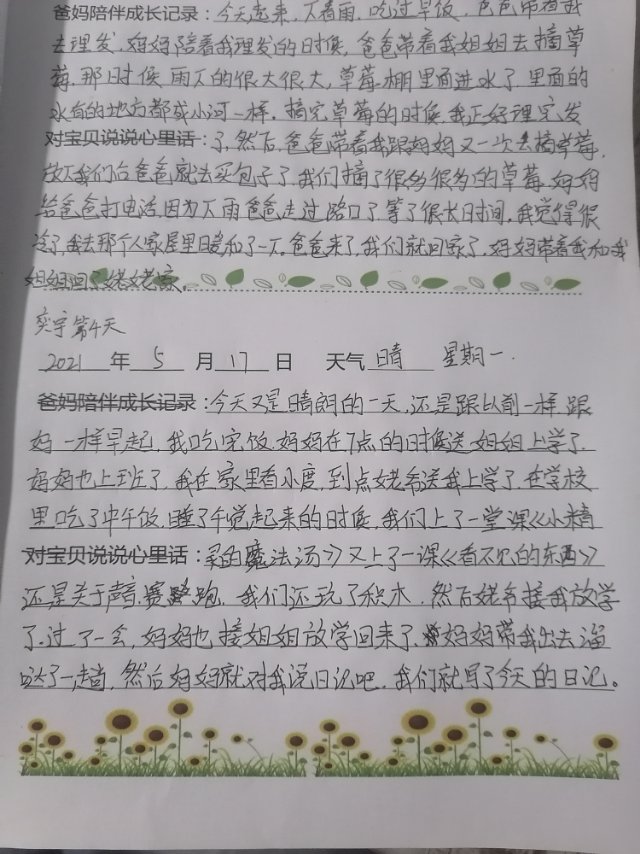 爸妈陪伴成长记录：今天起来，下着雨，吃过早饭，爸爸带着我
去理发，妈妈陪着我理发的时候，爸爸带着我姐姐去摘草
莓，那时候雨下的很大很大，草莓棚里面进水了，里面的
水有的地方都成小河一样。摘完草莓的时候，我正好理完发
对宝贝说说心里话：了，然后，爸爸带着我跟妈妈又一次去摘草莓，
放下我们后爸爸就去买包子了，我们摘了很多很多的草莓，妈妈
给爸爸打电话，因为下雨爸爸走过路口了，等了很长时间，我觉得很
冷了，我去那个人家屋里暖和了一下。爸爸来了，我们就回家了，妈妈带着我和我
姐姐回了姥姥家。
奕宇第4天
2021年5月17日 天气晴 星期一.
爸妈陪伴成长记录：今天又是晴朗的一天，还是跟以前一样跟
妈一样早起，我吃完饭，妈妈在7点的时候送姐姐上学了，
妈妈也上班了，我在家里看小度，到点姥爷送我上学了，在学校
里吃了中午饭，睡了午觉起来的时候，我们上了一堂课《小精
对宝贝说说心里话：灵的魔法汤》又上了一课《看不见的东西》
还是关于声音，赛跑，我们还玩了积木，然后姥爷接我放学
了，过了一会，妈妈也接姐姐放学回来了，妈妈带我出去溜
哒了一趟，然后妈妈就对我说日记吧，我们就写了今天的日记。